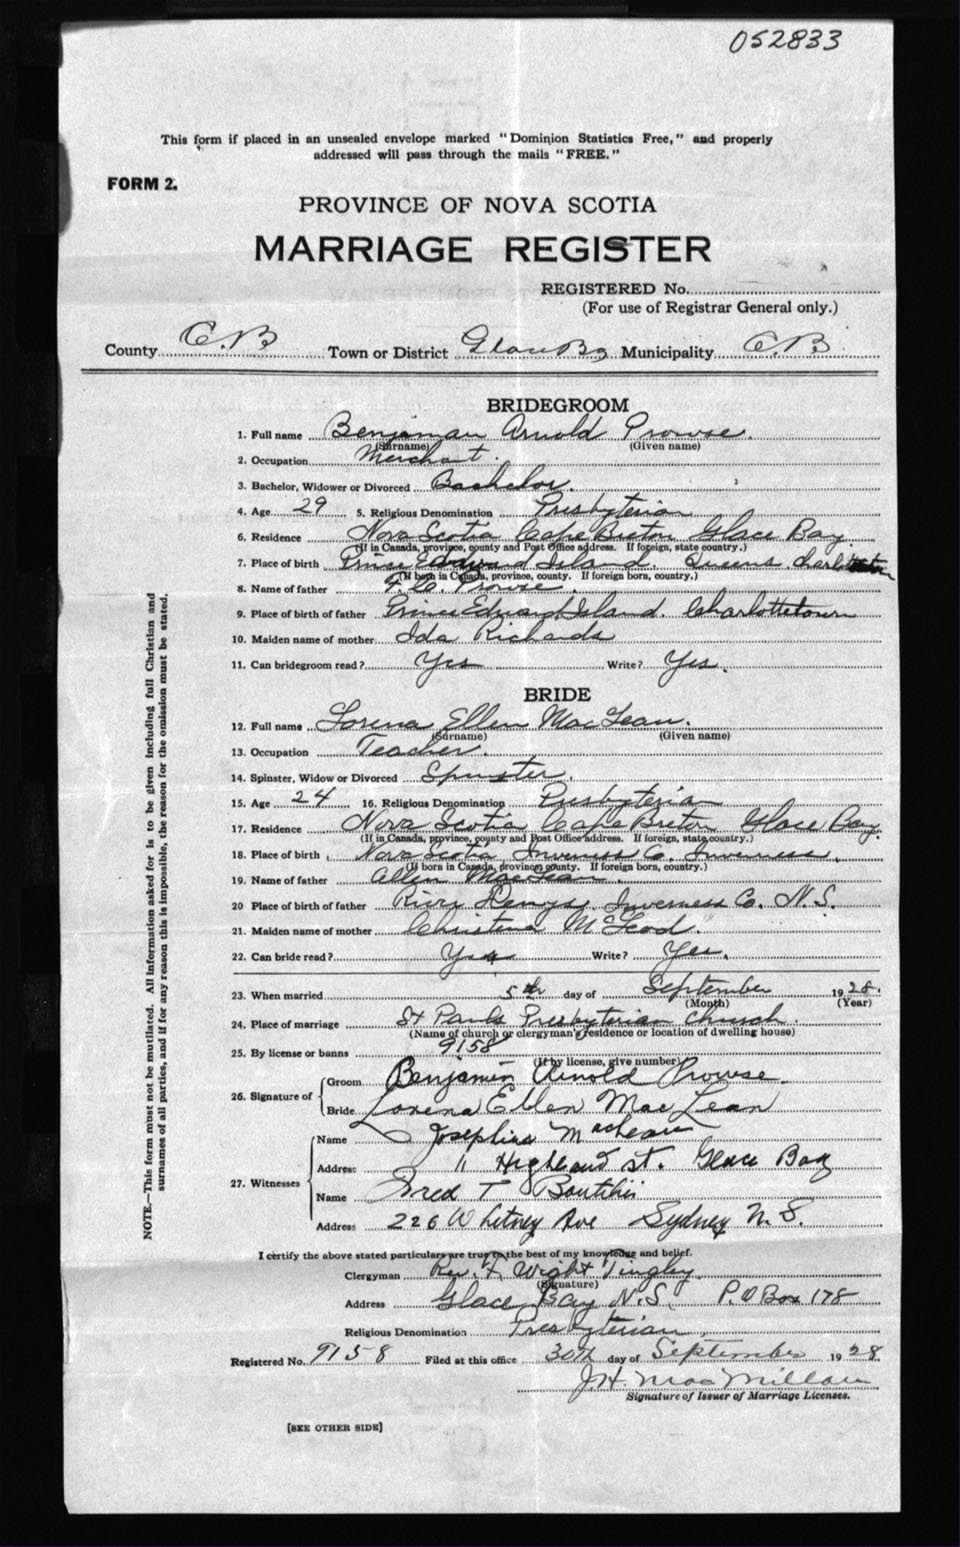 052833
This form if placed in an unsealed envelope marked "Dominion Statistics Free," and properly
addressed will pass through the mails "FREE."
FORM 2.
PROVINCE OF NOVA SCOTIA
MARRIAGE REGISTER
REGISTERED No.
(For use of Registrar General only.)
County C.B. Town or District Glace Bay Municipality C.B.
BRIDEGROOM
1. Full name Benjaman Arnold Prowse.
(Surname) (Given name)
2. Occupation Merchant.
3. Bachelor, Widower or Divorced Bachelor.
4. Age 29 5. Religious Denomination Presbyterian
6. Residence Nova Scotia Cape Breton Glace Bay.
(If in Canada, province, county and Post Office address. If foreign, state country.)
7. Place of birth Prince Edward Island. Queens Charlottetown
(If born in Canada, province, county. If foreign born, country.)
8. Name of father F. C. Prowse.
9. Place of birth of father Prince Edward Island. Charlottetown
10. Maiden name of mother Ida Richards
11. Can bridegroom read? Yes Write? Yes.
BRIDE
12. Full name Lorena Ellen MacLean.
(Surname) (Given name)
13. Occupation Teacher.
14. Spinster, Widow or Divorced Spinster.
15. Age 24 16. Religious Denomination Presbyterian
17. Residence Nova Scotia Cape Breton Glace Bay.
(If in Canada, province, county and Post Office address. If foreign, state country.)
18. Place of birth Nova Scotia, Inverness Co. Inverness.
(If born in Canada, province, county. If foreign born, country.)
19. Name of father Allen MacLean.
20 Place of birth of father River Denys, Inverness Co. N.S.
21. Maiden name of mother Christina McLeod.
22. Can bride read? Yes Write? Yes.
23. When married 5th day of September 1928.
(Month) (Year)
24. Place of marriage St Pauls Presbyterian Church.
(Name of church or clergyman's residence or location of dwelling house)
25. By license or banns 9158
(If by license, give number)
26. Signature of Groom Benjamin Arnold Prowse.
Bride Lorena Ellen MacLean
27. Witnesses Name Josephine MacLean
Address 11 Highland st. Glace Bay
Name Fred T Boutilier
Address 226 Whitney Ave Sydney N.S.
I certify the above stated particulars are true to the best of my knowledge and belief.
Clergyman Rev. F. Wight Tingley.
(Signature)
Address Glace Bay N.S. P.O Box 178
Religious Denomination Presbyterian.
Registered No. 9158 Filed at this office 30th day of September 1928.
J.H. MacMillan
Signature of Issuer of Marriage Licenses.
[SEE OTHER SIDE]
NOTE.—This form must not be mutilated. All information asked for is to be given including full Christian and
surnames of all parties, and if for any reason this is impossible, the reason for the omission must be stated.